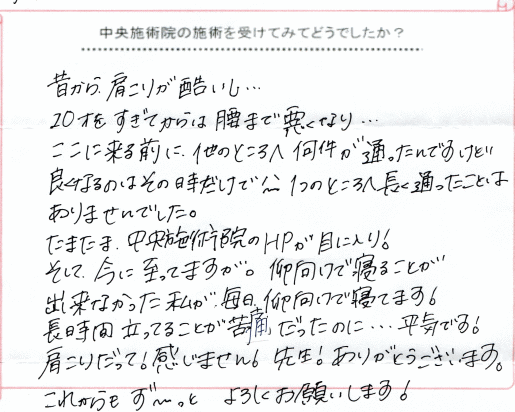 中央施術院の施術を受けてみてどうでしたか？
昔から、肩こりが酷いし…
20才をすぎてからは腰まで悪くなり…
ここに来る前に、他のところへ何件か通ったんですけど
良くなるのはその時だけで… 1つのところへ長く通ったことは
ありませんでした。
たまたま、中央施術院のHPが目に入り！
そして、今に至ってますが。仰向けで寝ることが
出来なかった私が、毎日、仰向けで寝てます！
長時間立ってることが苦痛だったのに…平気です！
肩こりだって！感じません！先生！ありがとうございます。
これからもず〜っと よろしくお願いします！